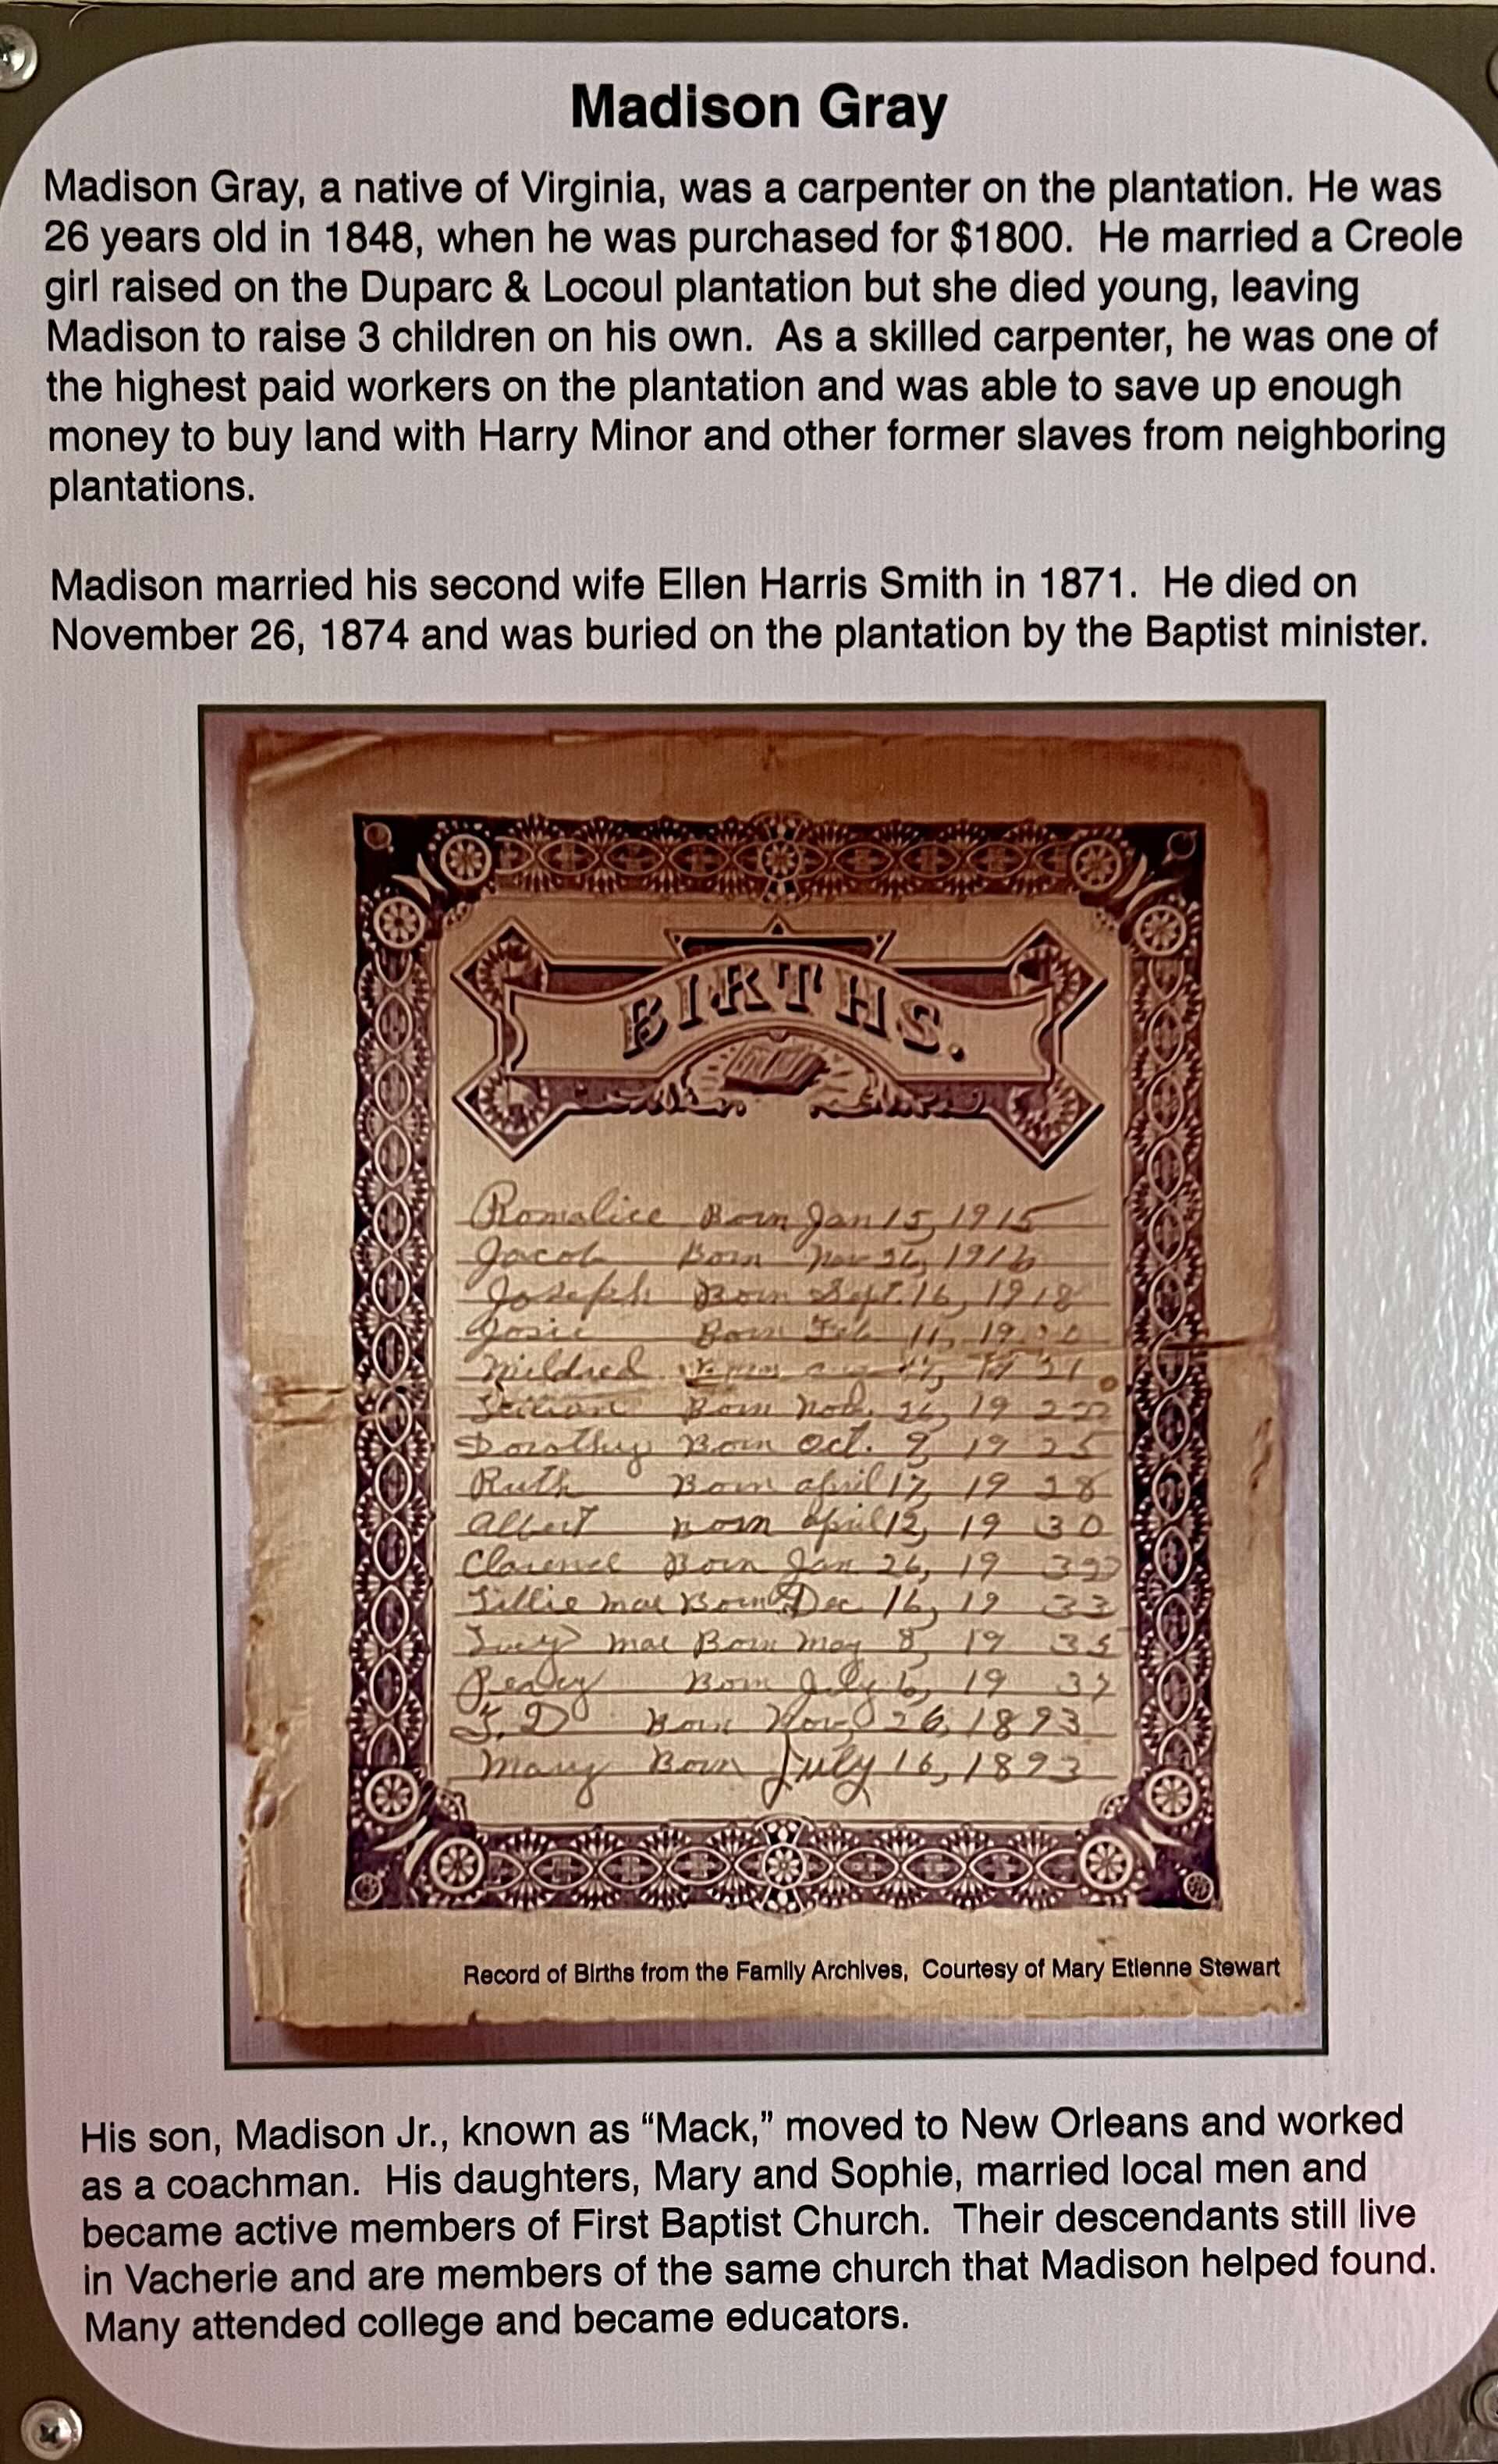 Madison Gray
Madison Gray, a native of Virginia, was a carpenter on the plantation. He was
26 years old in 1848, when he was purchased for $1800. He married a Creole
girl raised on the Duparc & Locoul plantation but she died young, leaving
Madison to raise 3 children on his own. As a skilled carpenter, he was one of
the highest paid workers on the plantation and was able to save up enough
money to buy land with Harry Minor and other former slaves from neighboring
plantations.
Madison married his second wife Ellen Harris Smith in 1871. He died on
November 26, 1874 and was buried on the plantation by the Baptist minister.
BIRTHS.
Romalice Born Jan 15, 1915
Jacob Born Nov 26, 1916
Joseph Born Sept. 16, 1918
Josie Born Feb 11, 1920
Mildred
Born Nov. 26, 19 22
Dorothy Born Oct. 9, 19 25
Ruth Born april 17, 19 28
Albert Born April 12, 19 30
Clarence Born Jan 26, 19 32
Lillie mae Born Dec 16, 19 33
Lucy mae Born may 8, 19 35
Born July 6, 19 37
Born Nov, 26, 1893
Mary Born July 16, 1893
Record of Births from the Family Archives, Courtesy of Mary Etienne Stewart
His son, Madison Jr., known as “Mack,” moved to New Orleans and worked
as a coachman. His daughters, Mary and Sophie, married local men and
became active members of First Baptist Church. Their descendants still live
in Vacherie and are members of the same church that Madison helped found.
Many attended college and became educators.